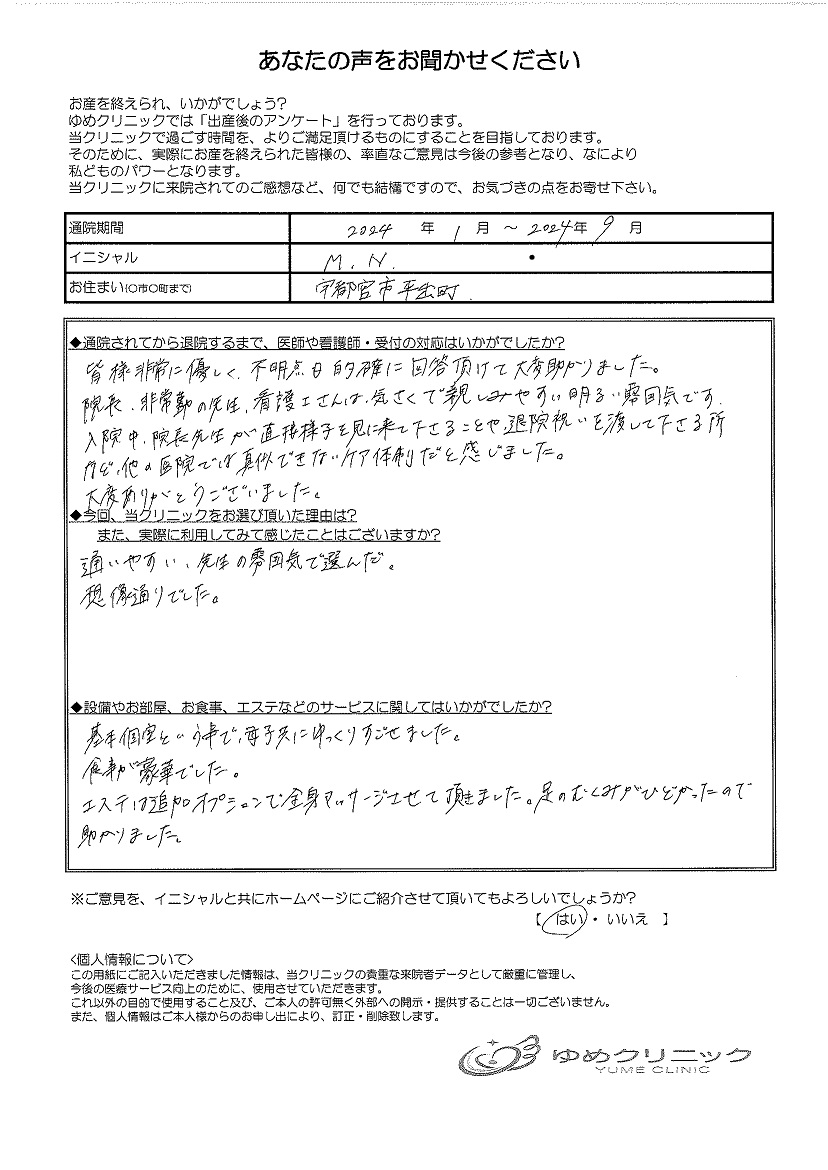 あなたの声をお聞かせください
お産を終えられ、いかがでしょう?
ゆめクリニックでは「出産後のアンケート」を行っております。
当クリニックで過ごす時間を、よりご満足頂けるものにすることを目指しております。
そのために、実際にお産を終えられた皆様の、率直なご意見は今後の参考となり、なにより
私どものパワーとなります。
当クリニックに来院されてのご感想など、何でも結構ですので、お気づきの点をお寄せ下さい。
通院期間 2024 年 1 月 ～ 2024年 9 月
イニシャル M.N. ・
お住まい(〇市〇町まで) 宇都宮市平出町
◆通院されてから退院するまで、医師や看護師・受付の対応はいかがでしたか?
皆様非常に優しく、不明点も的確に回答頂けて大変助かりました。
院長、非常勤の先生、看護士さんは、気さくで親しみやすい明るい雰囲気です。
入院中、院長先生が直接様子を見に来て下さることや、退院祝いを渡して下さる所
など、他の医院では真似できないケア体制だと感じました。
大変ありがとうございました。
◆今回、当クリニックをお選び頂いた理由は?
また、実際に利用してみて感じたことはございますか?
通いやすい、先生の雰囲気で選んだ。
想像通りでした。
◆設備やお部屋、お食事、エステなどのサービスに関してはいかがでしたか?
基本個室という事で、母子共にゆっくりすごせました。
食事が豪華でした。
エステは追加オプションで全身マッサージさせて頂きました。足のむくみがひどかったので
助かりました。
※ご意見を、イニシャルと共にホームページにご紹介させて頂いてもよろしいでしょうか?
【 はい ・ いいえ 】
<個人情報について>
この用紙にご記入いただきました情報は、当クリニックの貴重な来院者データとして厳重に管理し、
今後の医療サービス向上のために、使用させていただきます。
これ以外の目的で使用すること及び、ご本人の許可無く外部への開示・提供することは一切ございません。
また、個人情報はご本人様からのお申し出により、訂正・削除致します。
ゆめクリニック
YUME CLINIC